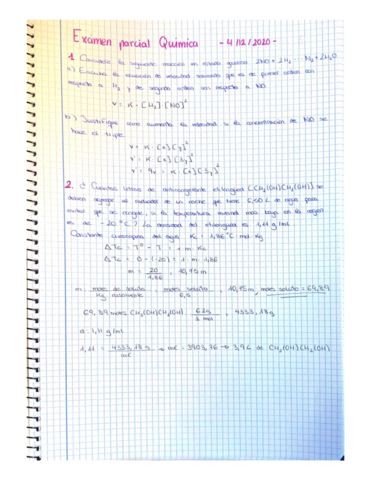 Examen parcial Química - 4/12/2020 -
1. Considere la siguiente reacción en estado gaseoso 2NO + 2H₂ → N₂ + 2H₂O
a) Escriba la ecuación de velocidad sabiendo que es de primer orden con
respecto a H₂ y de segundo orden con respecto a NO.
v = K · [H₂] [NO]²
b) Justifique cómo aumenta la velocidad si la concentración de NO se
hace el triple
v = K · [x] [y]²
v' = K · [x] [3y]²
v' = 9v = K · [x] [3y]²
2. ¿ Cuántos litros de anticongelante etilenglicol [CH₂(OH)CH₂(OH)] se
deben agregar al radiador de un coche que tiene 6,50 L de agua para
evitar que se congele, si la temperatura invernal más baja en la región
es de -20 °C? La densidad del etilenglicol es 1,11 g/mL
Constante crioscópica del agua Kc = 1,86 °C mol Kg
ΔTc = T° - T = 1 m · Kc
ΔTc = 0 - (-20) = 1 m · 1,86
m = 20/1,86 = 10,75 m
m = moles de soluto / Kg disolvente = moles soluto / 6,5 = 10,75 m, moles soluto = 69,89
69,89 moles CH₂(OH)CH₂(OH) 62g / 1 mol = 4333,18 g
d = 1,11 g/mL
1,11 = 4333,18 g / mL → mL = 3903,76 → 3,9 L de CH₂(OH)CH₂(OH)